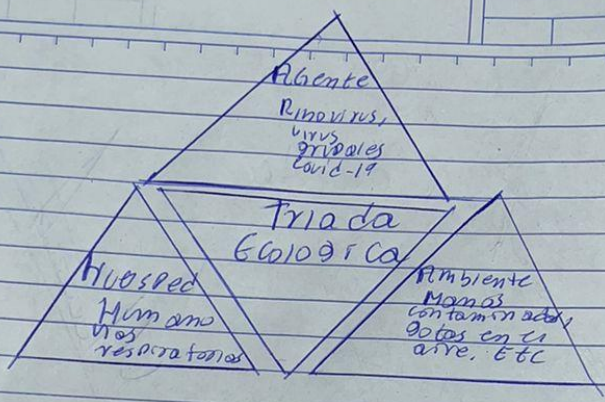 Agente
Rinovirus,
virus
gripales
Covid-19
Triada
Ecologica
Huesped
Humano
vias
respiratorias
Ambiente
Manos
contaminadas,
gotas en el
aire. Etc